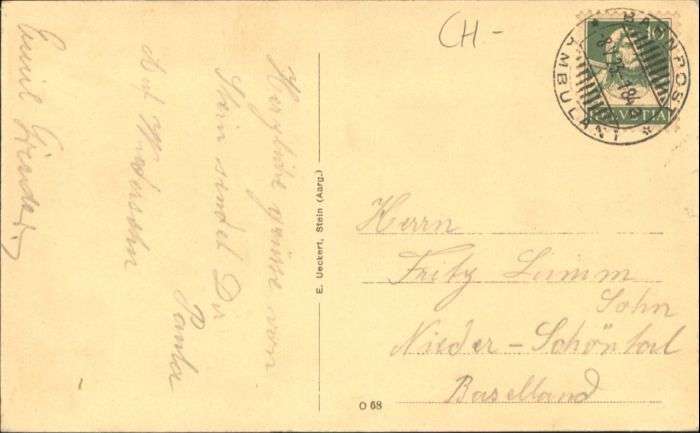 CH-
BAHNPOST
AMBULANT
10
HELVETIA
Herzliche grüsse von
Stein sendet Dir
Auf Wiedersehn
Emil
E. Ueckert, Stein (Aarg.)
Herrn
Fritz Lumm
Sohn
Nieder-Schöntal
Baselland
O 68